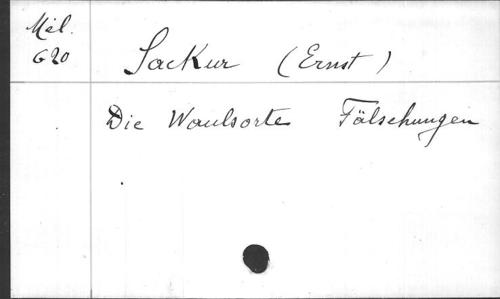 Mél.
G 20
Sackur (Ernst)
Die Waulsorte Fälschungen